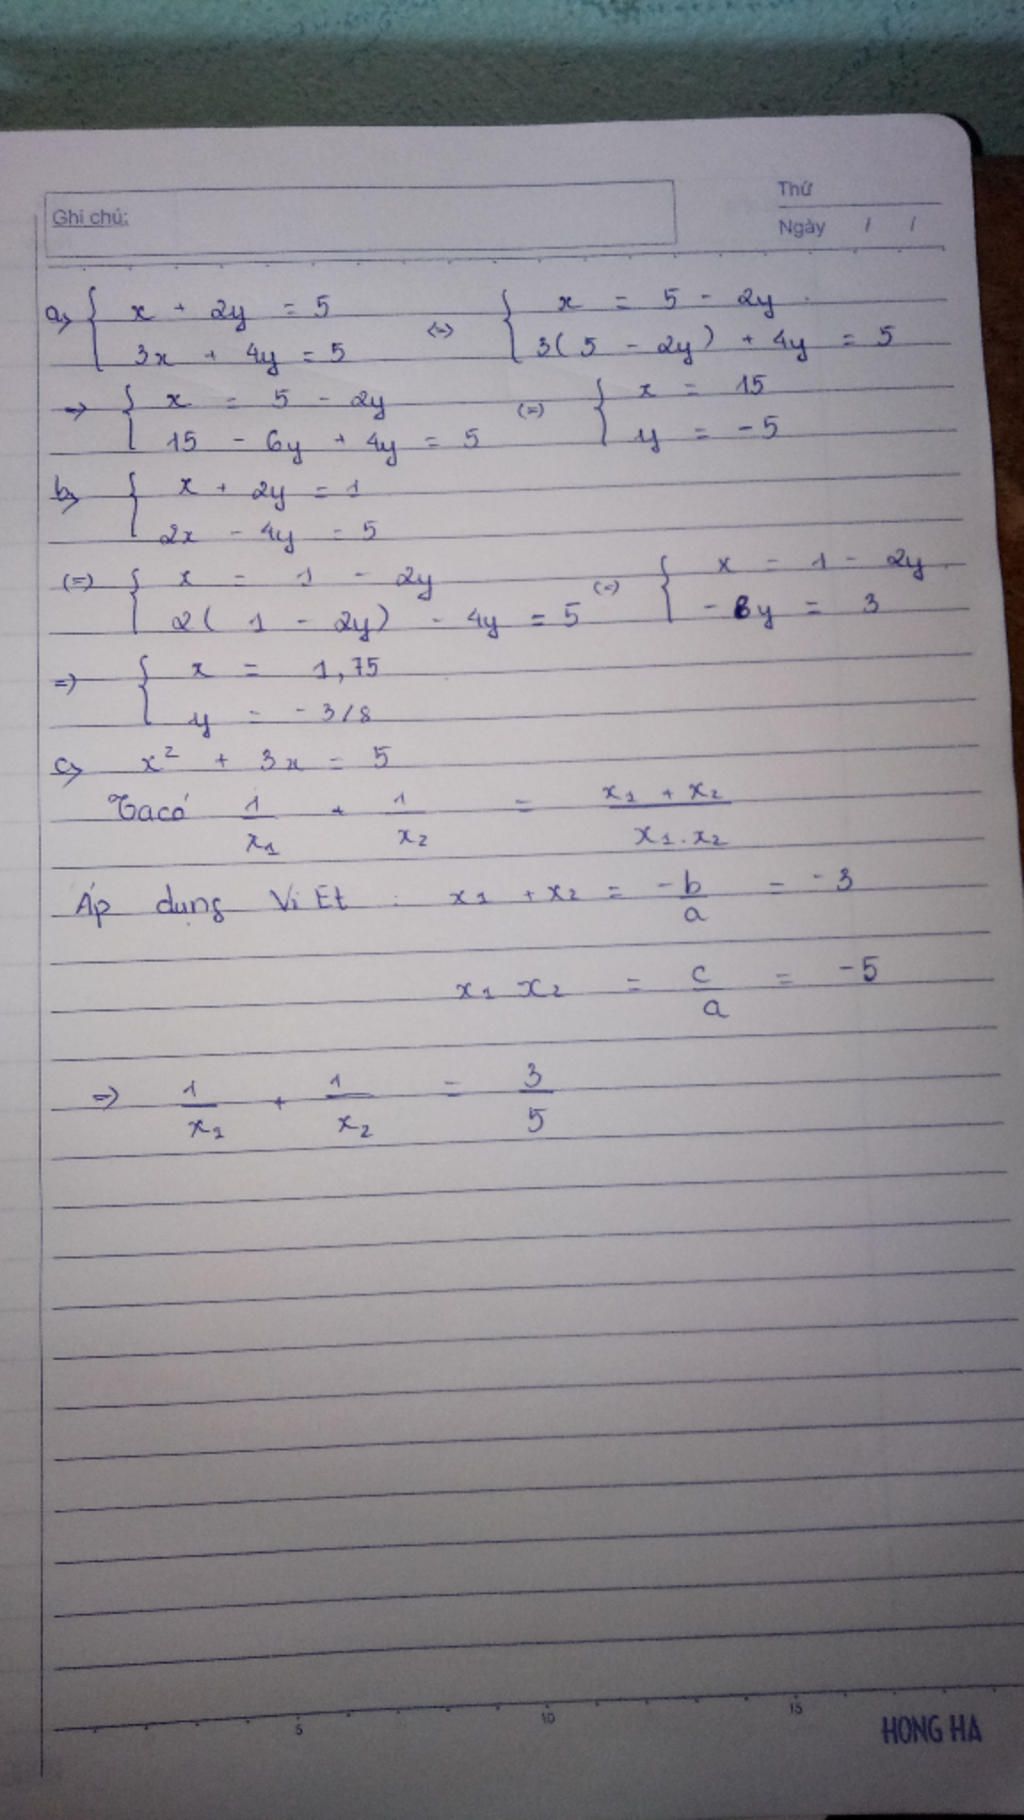 Ghi chú:
Thứ
Ngày / /
a, { x + 2y = 5 (=) { x = 5 - 2y
3x + 4y = 5 3( 5 - 2y) + 4y = 5
=> { x = 5 - 2y (=) { x = 15
15 - 6y + 4y = 5 y = -5
b, { x + 2y = 1
2x - 4y = 5
(=) { x = 1 - 2y (=) { x = 1 - 2y
2( 1 - 2y) - 4y = 5 - 8y = 3
=) { x = 1,75
y = - 3/8
c, x² + 3x = 5
Ta có 1/x1 + 1/x2 = x1 + x2/x1.x2
Áp dụng Vi Ét : x1 + x2 = -b/a = -3
x1 x2 = c/a = -5
=) 1/x1 + 1/x2 = 3/5
5 10 15
HONG HA